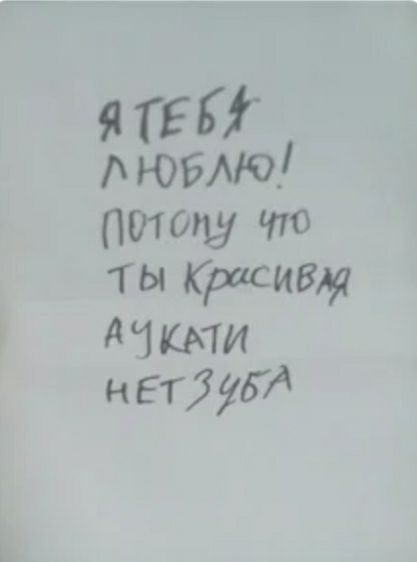 Я ТЕБЯ
ЛЮБЛЮ!
ПОТОМУ ЧТО
ТЫ КРАСИВАЯ
А У КАТИ
НЕТ ЗУБА